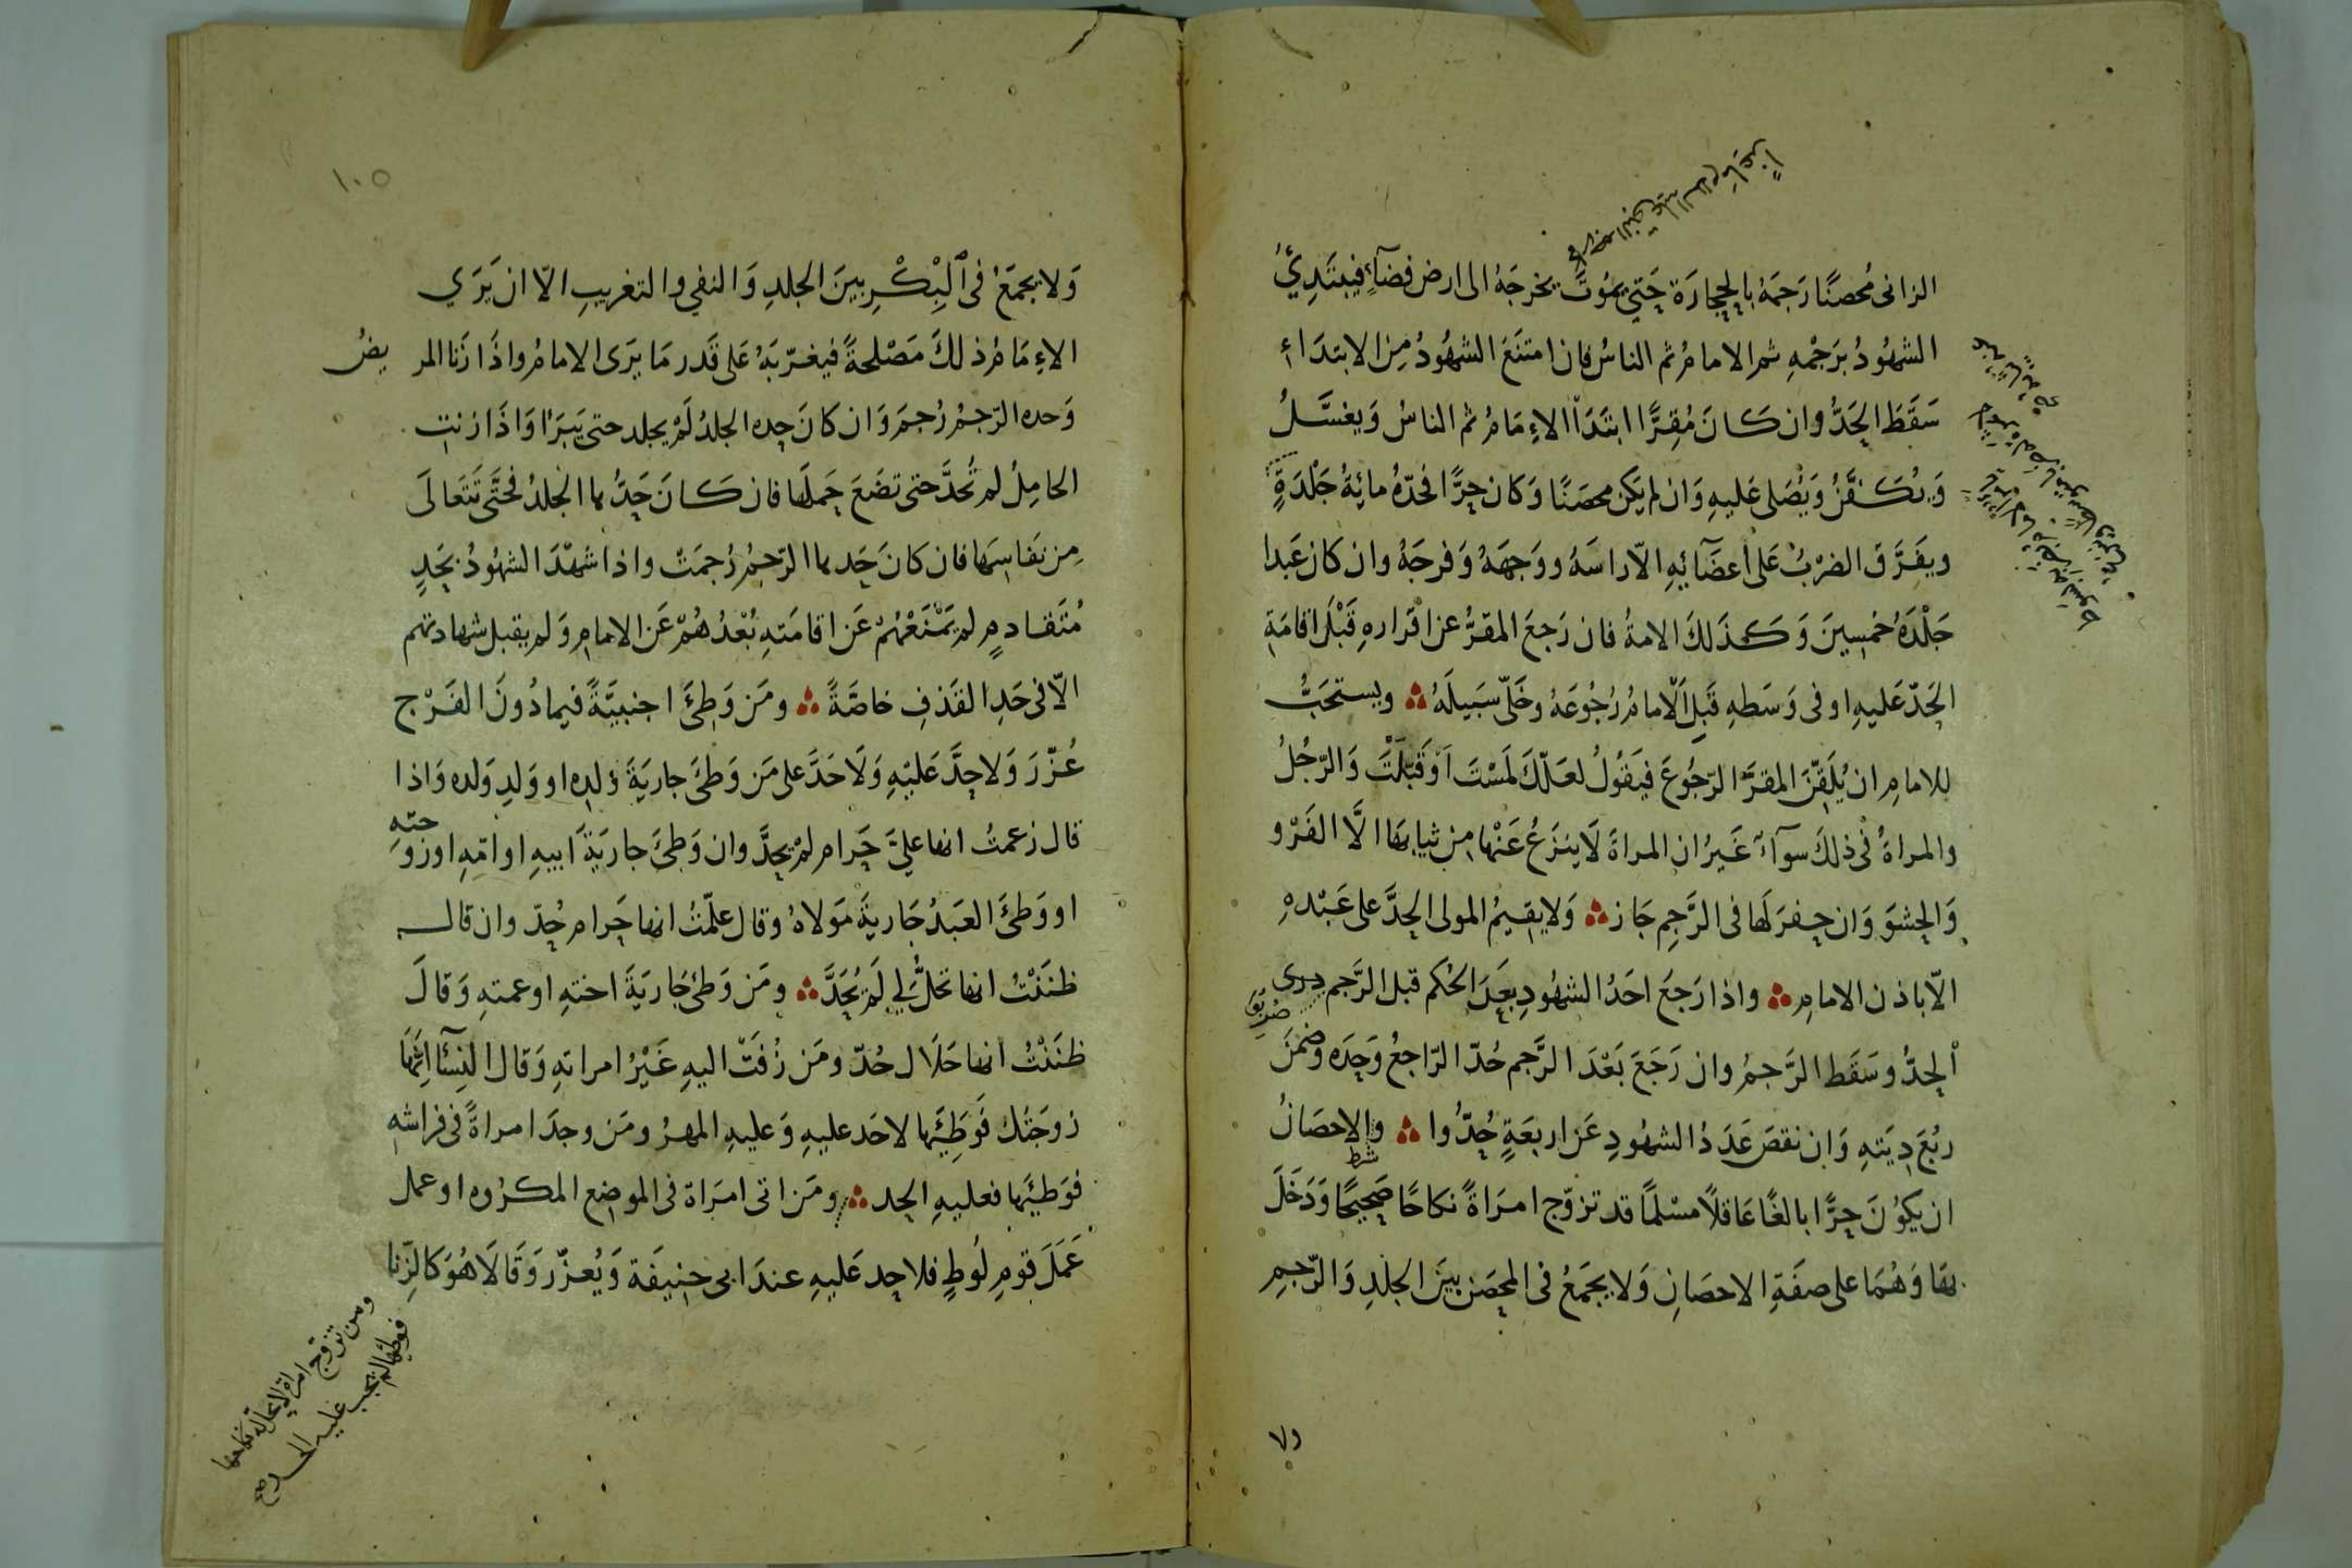 الزانى مُحصنًا رَجمَهُ بالحجارَة حَتى يَموُتَ يخرجَهُ الى ارض فضآءٍ فيبتَدِيُ
الشهُودُ برَجْمهِ ثم الامامُ ثم الناسُ فان امتنَعَ الشهُودُ مِن الابتدَاءِ
سَقَطَ الحَدُّ وان كَانَ مُقِرًّا ابتَدَأ الاِمَامُ ثم الناسُ وَيغسَّلُ
وَيُكَفَّنُ وَيُصَلى عَليهِ وَان لم يَكن محصَنًا وَكان حرًّا فحدّهُ مائِةُ جَلْدَةٍ
ويفَرَّقُ الضرْبُ عَلى اَعضَآئِهِ الاّ راسَهُ ووَجهَهُ وَفرجَهُ وان كان عَبدا
جَلْدَهُ خمسِينَ وَكذَلكَ الامةُ فان رَجعَ المقرُّ عن اقرارهِ قَبْلَ اقامَةِ
الحَدّ عَليهِ او فى وَسَطهِ قَبِلَ الاْمامُ رُجُوعَهُ وخَلّى سَبَيلَهُ ويستحَبُّ
للامامِ ان يُلَقِّنَ المقرَّ الرّجُوعَ فيَقُولُ لعَلّكَ لمَسْتَ اَوْ قَبّلتَ وَالرّجُلُ
والمراةُ فى ذلكَ سوَآءٌ غَيرُ ان المراةَ لَا ينزَعُ عَنْها مِن ثيابهَا الَّا الفَرْو
وَالحشوَ وَان حفرَ لَها فى الرَّجمِ جَاز وَلا يقيمُ المولى الحدَّ على عَبْدهِ
الّا باذن الامامِ واذا رَجعَ احَدُ الشهُودِ بعَدَ الحُكم قبلَ الرَّجم
الحدُّ وسَقَطَ الرَّجمُ وان رَجَعَ بَعْدَ الرَّجم حُدّ الرّاجعُ وَحدَه وضمنَ
ربُعَ دِيَتهِ وَان نقصَ عَدَدُ الشهُودِ عَن اربعَةٍ حُدُّوا والاحصَانُ
شرط
ان يكوُنَ حرًّا بالغًا عَاقلًا مسْلمًا قد تزوّج امرَاةً نكاحًا صَحِيحًا وَدَخَلَ
بهَا وَهُمَا على صفَةِ الاحصَانِ وَلا يجمَعُ فى المحصَن بينَ الجلدِ وَالرّجمِ
١٠٥
وَلا يجمَعُ فى البِكْرِ بينَ الجلدِ وَالنفي والتغريبِ الاّ ان يَرَي
الاِمَامُ ذلكَ مَصْلحةً فيغرّبَهُ عَلى قَدر مَا يرَى الامامُ واذَا زَنا المريضُ
وَحده الرّجمُ رُجمَ وَان كانَ حده الجلدُ لَمْ يجلد حتى يَبَرَأ وَاذَا زنتِ
الحامِلُ لم تُحدَّ حتى تضَعَ حَملَها فان كَانَ حَدُّها الجلدُ فحَتَّى تَتَعالَى
مِن نفاسِهَا فان كانَ حَدها الرّجمُ رُجمَتْ واذا شهْدَ الشهُودُ بحَدٍ
مُتَقادمٍ لم يَمْنَعْهُمْ عَن اقامَتهِ بُعْدُهُمْ عَن الامامِ وَلم يقبل شهادتهم
الّا فى حَدِ القَذفِ خاصَّةً ومَن وَطِئَ اجنبيَّةً فيما دُونَ الفَرْجِ
عُزّرَ وَلا حدَّ عَليْهِ وَلَا حَدَّ على مَن وَطئَ جاريَةَ ولدِه او وَلدِ وَلده وَاذا
قال زعمتُ انها عليَّ حَرام لمْ يحدَّ وان وَطِئَ جاريَةَ ابيهِ او امّهِ او زوجتهِ
او وَطئَ العَبدُ جَاريةَ مَولاهُ وقال علّمتُ انها حَرام حُدّ وان قال
ظننْتُ انها تحلُّ لي لَمْ يُحَدَّ ومَن وَطئَ جَاريَةَ اختهِ او عمتهِ وَقالَ
ظننْتُ انها حَلَال حُدّ ومَن زُفَتْ اليهِ غَيْرُ امراتهِ وَقال النِسَآءُ اِنَّهَا
زوجَتُك فَوَطِئَها لا حَد عليهِ وَعليهِ المهرُ ومَن وجدَ امراةً فى فراشهِ
فوَطِئَها فعليهِ الحد ومَن اتى امرَاة فى الموضِع المكرُوه او عمل
عَمَلَ قومِ لوُطٍ فلا حد عَليهِ عندَ ابى حنيفَة وَيُعزّر وَقَالَا هُوَ كالزِنا
ومن تزوّج امراة لا يحل له نكاحها
فوطئها لم يجب عليه الحد